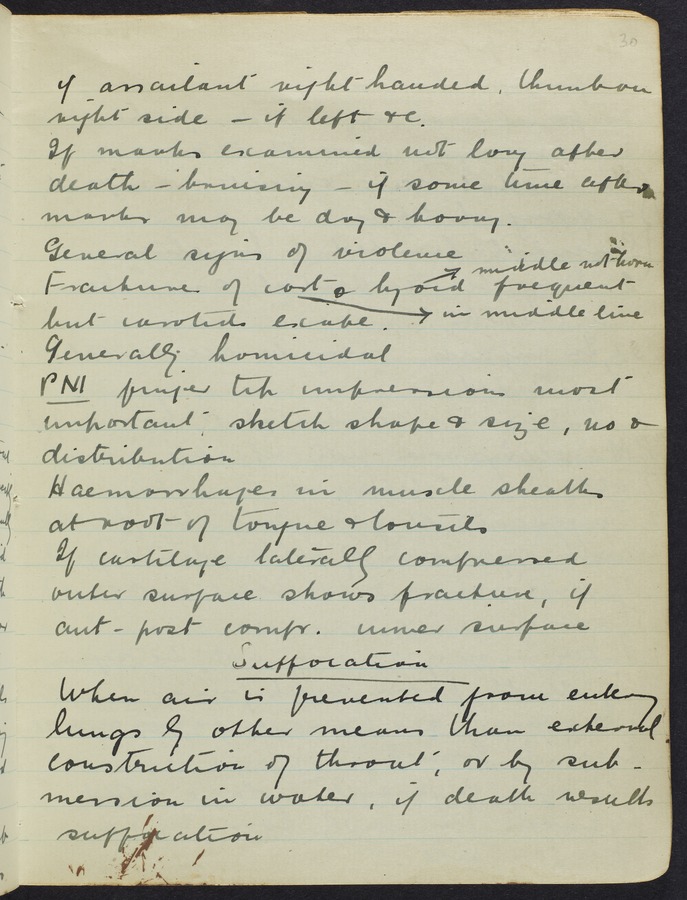 30
if assailant right handed, thumb on
right side – if left &c.
If marks examined not long after
death – bruising – if some time after
marks may be dry & horny.
General signs of violence
middle not horn
Fracture of cart & hyoid frequent
but carotids escape. in middle line
Generally homicidal
PNI finger tip impressions most
important, sketch shape & size, no &
distribution
Haemorrhages in muscle sheaths
at root of tongue & tonsils
If cartilage laterally compressed
outer surface shows fracture, if
ant-post compr. inner surface
Suffocation
When air is prevented from entering
lungs by other means than external
constriction of throat, or by sub-
mersion in water, if death results
suffocation